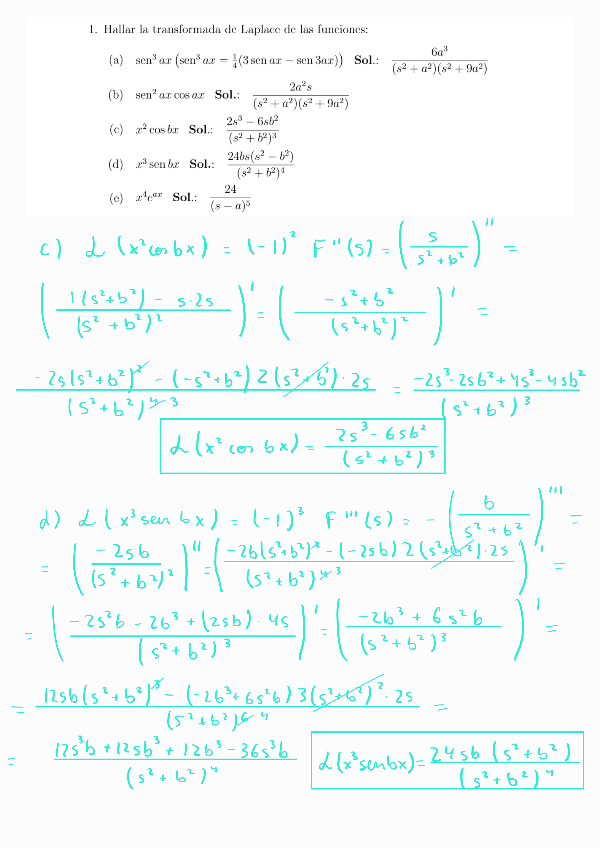 1. Hallar la transformada de Laplace de las funciones:
(a) sen³ ax (sen³ ax = 1/4(3 sen ax − sen 3ax)) Sol.: 6a³/((s² + a²)(s² + 9a²))
(b) sen² ax cos ax Sol.: 2a²s/((s² + a²)(s² + 9a²))
(c) x² cos bx Sol.: (2s³ − 6sb²)/(s² + b²)³
(d) x³ sen bx Sol.: 24bs(s² − b²)/(s² + b²)⁴
(e) x⁴eᵃˣ Sol.: 24/(s − a)⁵
c) L (x² cos bx) = (-1)² F''(s) = (s/(s² + b²))'' =
((1(s²+b²) - s·2s)/(s² + b²)²)' = ((-s² + b²)/(s² + b²)²)' =
(-2s(s²+b²)² - (-s²+b²) 2 (s²+b²)·2s)/(s² + b²)⁴ ³ = (-2s³-2sb²+4s³-4sb²)/(s² + b²)³
L (x² cos bx) = (2s³ - 6sb²)/(s² + b²)³
d) L (x³ sen bx) = (-1)³ F'''(s) = - (b/(s² + b²))''' =
= (-2sb/(s² + b²)²)'' = ((-2b(s²+b²)² - (-2sb) 2 (s²+b²)·2s)/(s² + b²)⁴ ³)' =
= ((-2s²b - 2b³ + (2sb)·4s)/(s² + b²)³)' = ((-2b³ + 6s²b)/(s² + b²)³)' =
= (12sb(s² + b²)³ - (-2b³+6s²b) 3(s²+b²)²·2s)/(s² + b²)⁶ ⁴ =
= (12s³b + 12sb³ + 12b³ - 36s³b)/(s² + b²)⁴
L(x³senbx) = 24sb (s² + b²)/(s² + b²)⁴